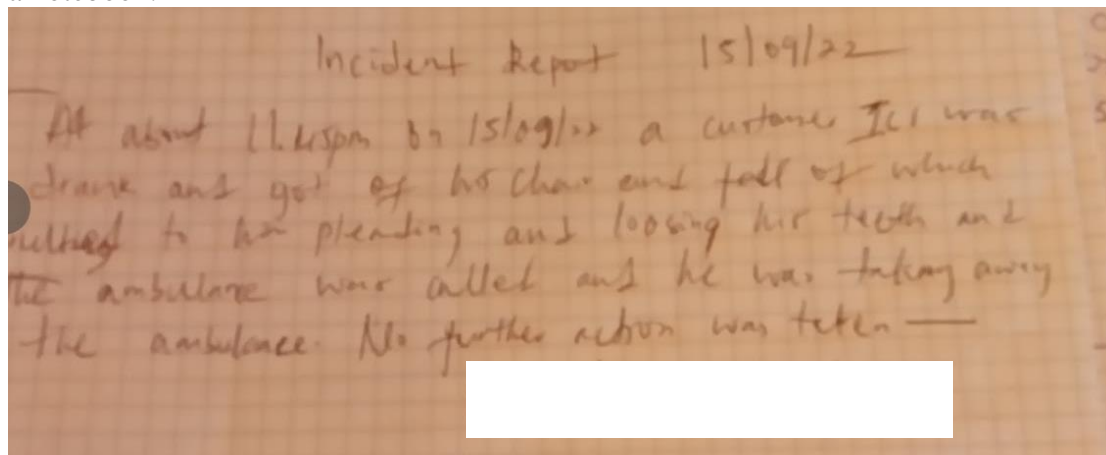 Incident Repot 15/09/22
At about 11.45pm on 15/09/22 a customer IC1 was
drank and got of his chair and fall of which
to his pleading and loosing his teeth and
the ambulance was called and he was taking away
the ambulance. No further action was teken